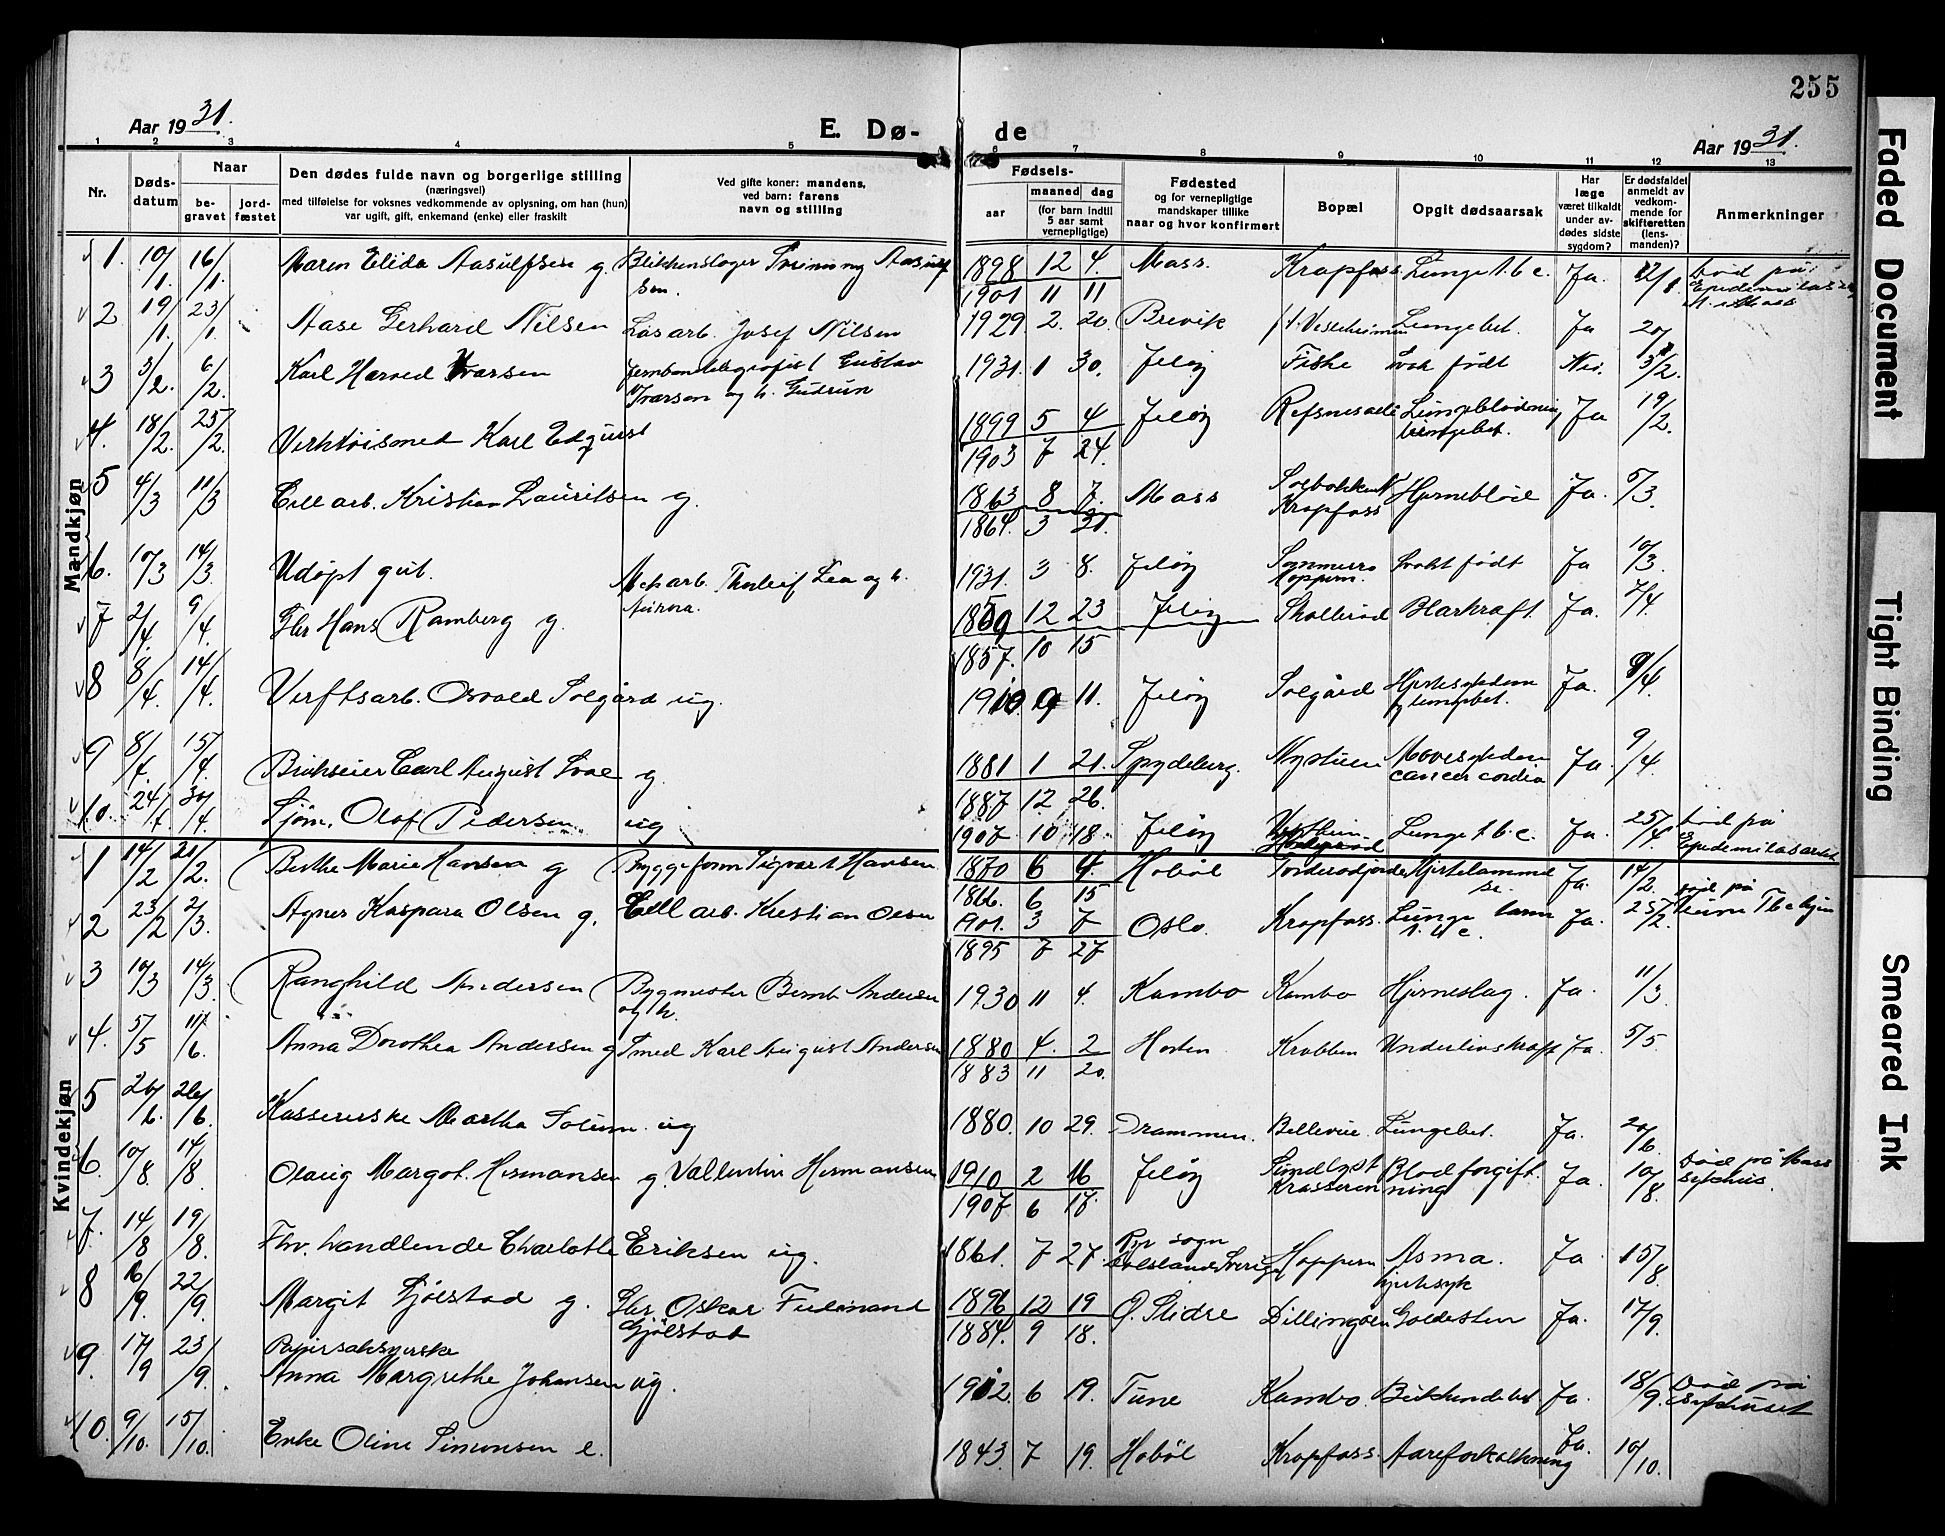 255
Aar 1931.
E. Dø-
de
Aar 1931.
1 2 3 4 5 6 7 8 9 10 11 12 13
Nr.
Døds-
datum
Naar
be-
gravet
jord-
fæstet
Den dødes fulde navn og borgerlige stilling
(næringsvei)
med tilføielse for voksnes vedkommende av oplysning, om han (hun)
var ugift, gift, enkemand (enke) eller fraskilt
Ved gifte koner: mandens,
ved barn: farens
navn og stilling
Fødsels-
aar
maaned dag
(for barn indtil
5 aar samt
vernepligtige)
Fødested
og for vernepligtige
mandskaper tillike
naar og hvor konfirmert
Bopæl
Opgit dødsaarsak
Har
læge
været tilkaldt
under av-
dødes sidste
sygdom?
Er dødsfaldet
anmeldt av
vedkom-
mende for
skifteretten
(lens-
manden)?
Anmerkninger
Mandkjøn
1. 10/1. 16/1. Maren Elida Aasulfsen g. 1898 12 4. Moss. Krapfoss Lunge t.b.c. Ja. 12/1 Død på
sen. 1901 11 11
2 19/1. 23/1. Aase Gerhard Nilsen Løsarb. Josef Nilsen 1929. 2. 20. Brevik Lungebet. Ja 20/1
3 3/2. 6/2. Karl Harved Ivarsen Jernbanetelegrafist Gustav 1931. 1 30. Jeløy Fiske Svak født Nei. 3/2.
Ivarsen og h. Gudrun
4. 18/2. 25/2. Verktøismed Karl Edquist 1899 5 4 Jeløy Lungeblødning Ja 19/2.
lungebet.
1903 7 24.
5 4/3 11/3 Cell arb. Kristian Lauritsen g. 1863 8 7. Moss Hjerneblød Ja. 5/3.
Krapfoss
1864. 3 31.
6. 10/3 14/3. Udøpt gut. Mek arb. Thorleif Lea og h. 1931. 3 8. Jeløy Svakt født Ja 10/3.
Aurora.
7 2/4. 9/4. Gbr Hans Ramberg g. 1859 12 23 Jeløy Skallerød Blærkræft. Ja. 2/4.
1857. 10 15
8 8/4. 14/4. Verftsarb. Osvald Solgård ug. 1910. 9 11. Jeløy Solgård Ja. 9/4.
9 8/4. 15/4. Carl August g. 1881 1 21. Spydeberg. Mavesykdom Ja. 9/4.
cancer cardia
1887 12 26.
10. 24/4. 30/4. Sjøm. Olaf Pedersen ug 1907 10 18 Jeløy Lunge t.b.c. Ja. 25/4. Død på
Kvindekjøn
1 14/2 21/2. Berthe Marie Hansen g Byggeform Sigvart Hansen 1870 6 4. Hobøl Ja. 14/2.
1866. 6 15
2 23/2 2/3. Agnes Kaspara Olsen g. Cell arb. Kristian Olsen 1901. 3 7 Oslo. Krapfoss. Ja. 25/2. død på
1895 7 27
3 10/3 14/3. Ranghild Andersen Bygmester Bernh Andersen 1930 11 4. Kambo Kambo Hjerneslag. Ja. 11/3.
og h.
4. 5/5 11/6. Anna Dorothea Andersen g Smed Karl August Andersen 1880 4. 2 Horten Krabben Underlivskræft Ja. 5/5.
1883 11 20.
5 20/6. 26/6. Kassererske Martha Solum. ug 1880. 10 29. Drammen. Bellevue. Lungebet. Ja. 20/6.
6. 10/8. 14/8. Olaug Margot Hermansen g. Vallentin Hermansen 1910 2 16 Jeløy Blodforgift Ja. 10/8. Død på Moss
Krasseren ning sykhus.
1907 6 17.
7. 14/8 19/8. Fhv. handlende Charlotte Eriksen ug. 1861. 7 27. sogn Hoppern Asma. Ja 15/8.
hjertesyk
8 16/9. 22/9. Margit Gjølstad g. Gbr Oskar Ferdinand 1896 12 19 Ø. Slidre Dillingøen Galdesten Ja. 17/9.
Gjølstad 1884. 9 18.
9. 17/9 23/9. Papirsakserske
Anna Margrethe Johansen ug. 1912. 6 19. Tune Kambo. Ja. 18/9. Død på
Sykhuset
10. 9/10. 15/10. Enke Oline Simonsen e. 1843. 7 19. Hobøl Krapfoss. Aareforkalkning Ja. 10/10.
Faded Document
Tight Binding
Smeared Ink